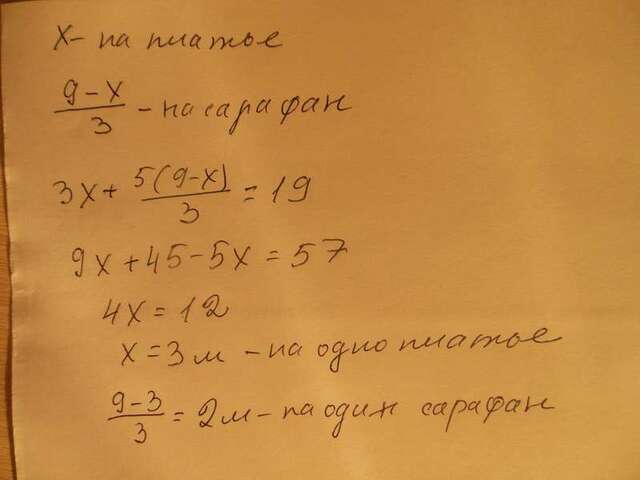 x - на платье
(9-x)/3 - на сарафан
3x + 5(9-x)/3 = 19
9x + 45 - 5x = 57
4x = 12
x = 3 м - на одно платье
(9-3)/3 = 2 м - на один сарафан